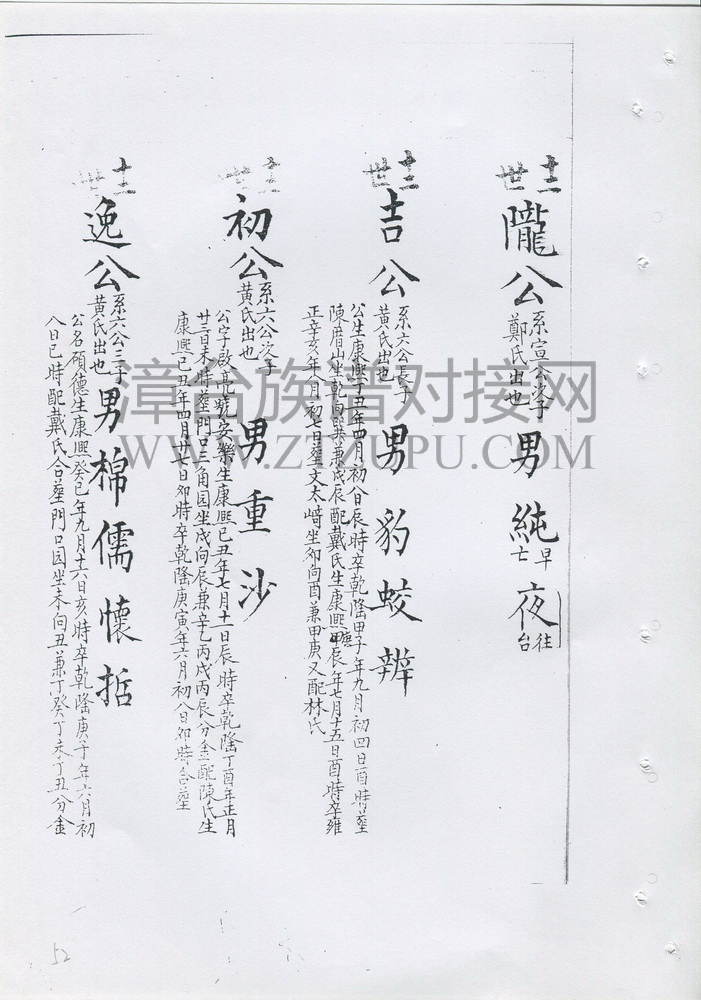 十三世
隴公
系宣公次子
鄭氏出也
男純夜
早亡
往台
十三世
吉公
系六公長子
黄氏出也
男豹蛟辨
公生康熙丁丑年四月初八日辰時卒乾隆甲子年九月初四日酉時葬
陳厝山坐乾向巽兼戊辰配戴氏生康熙庚辰年七月十五日酉時卒雍
正辛亥年八月初七日葬文太崎坐卯向酉兼甲庚又配林氏
十三世
初公
系六公次子
黄氏出也
男重沙
公字啟亮號安樂生康熙己丑年七月十一日辰時卒乾隆丁酉年正月
廿三日未時葬門口三角园坐戌向辰兼辛乙丙戌丙辰分金配陳氏生
康熙己丑年四月廿七日卯時卒乾隆庚寅年六月初八日卯時合葬
十三世
逸公
系六公三子
黄氏出也
男棉儒懷括
公名碩德生康熙癸巳年九月十六日亥時卒乾隆庚子年六月初
八日巳時配戴氏合葬門口园坐未向丑兼丁癸丁未丁丑分金
漳台族谱对接网
WWW.ZTZUPU.COM
52